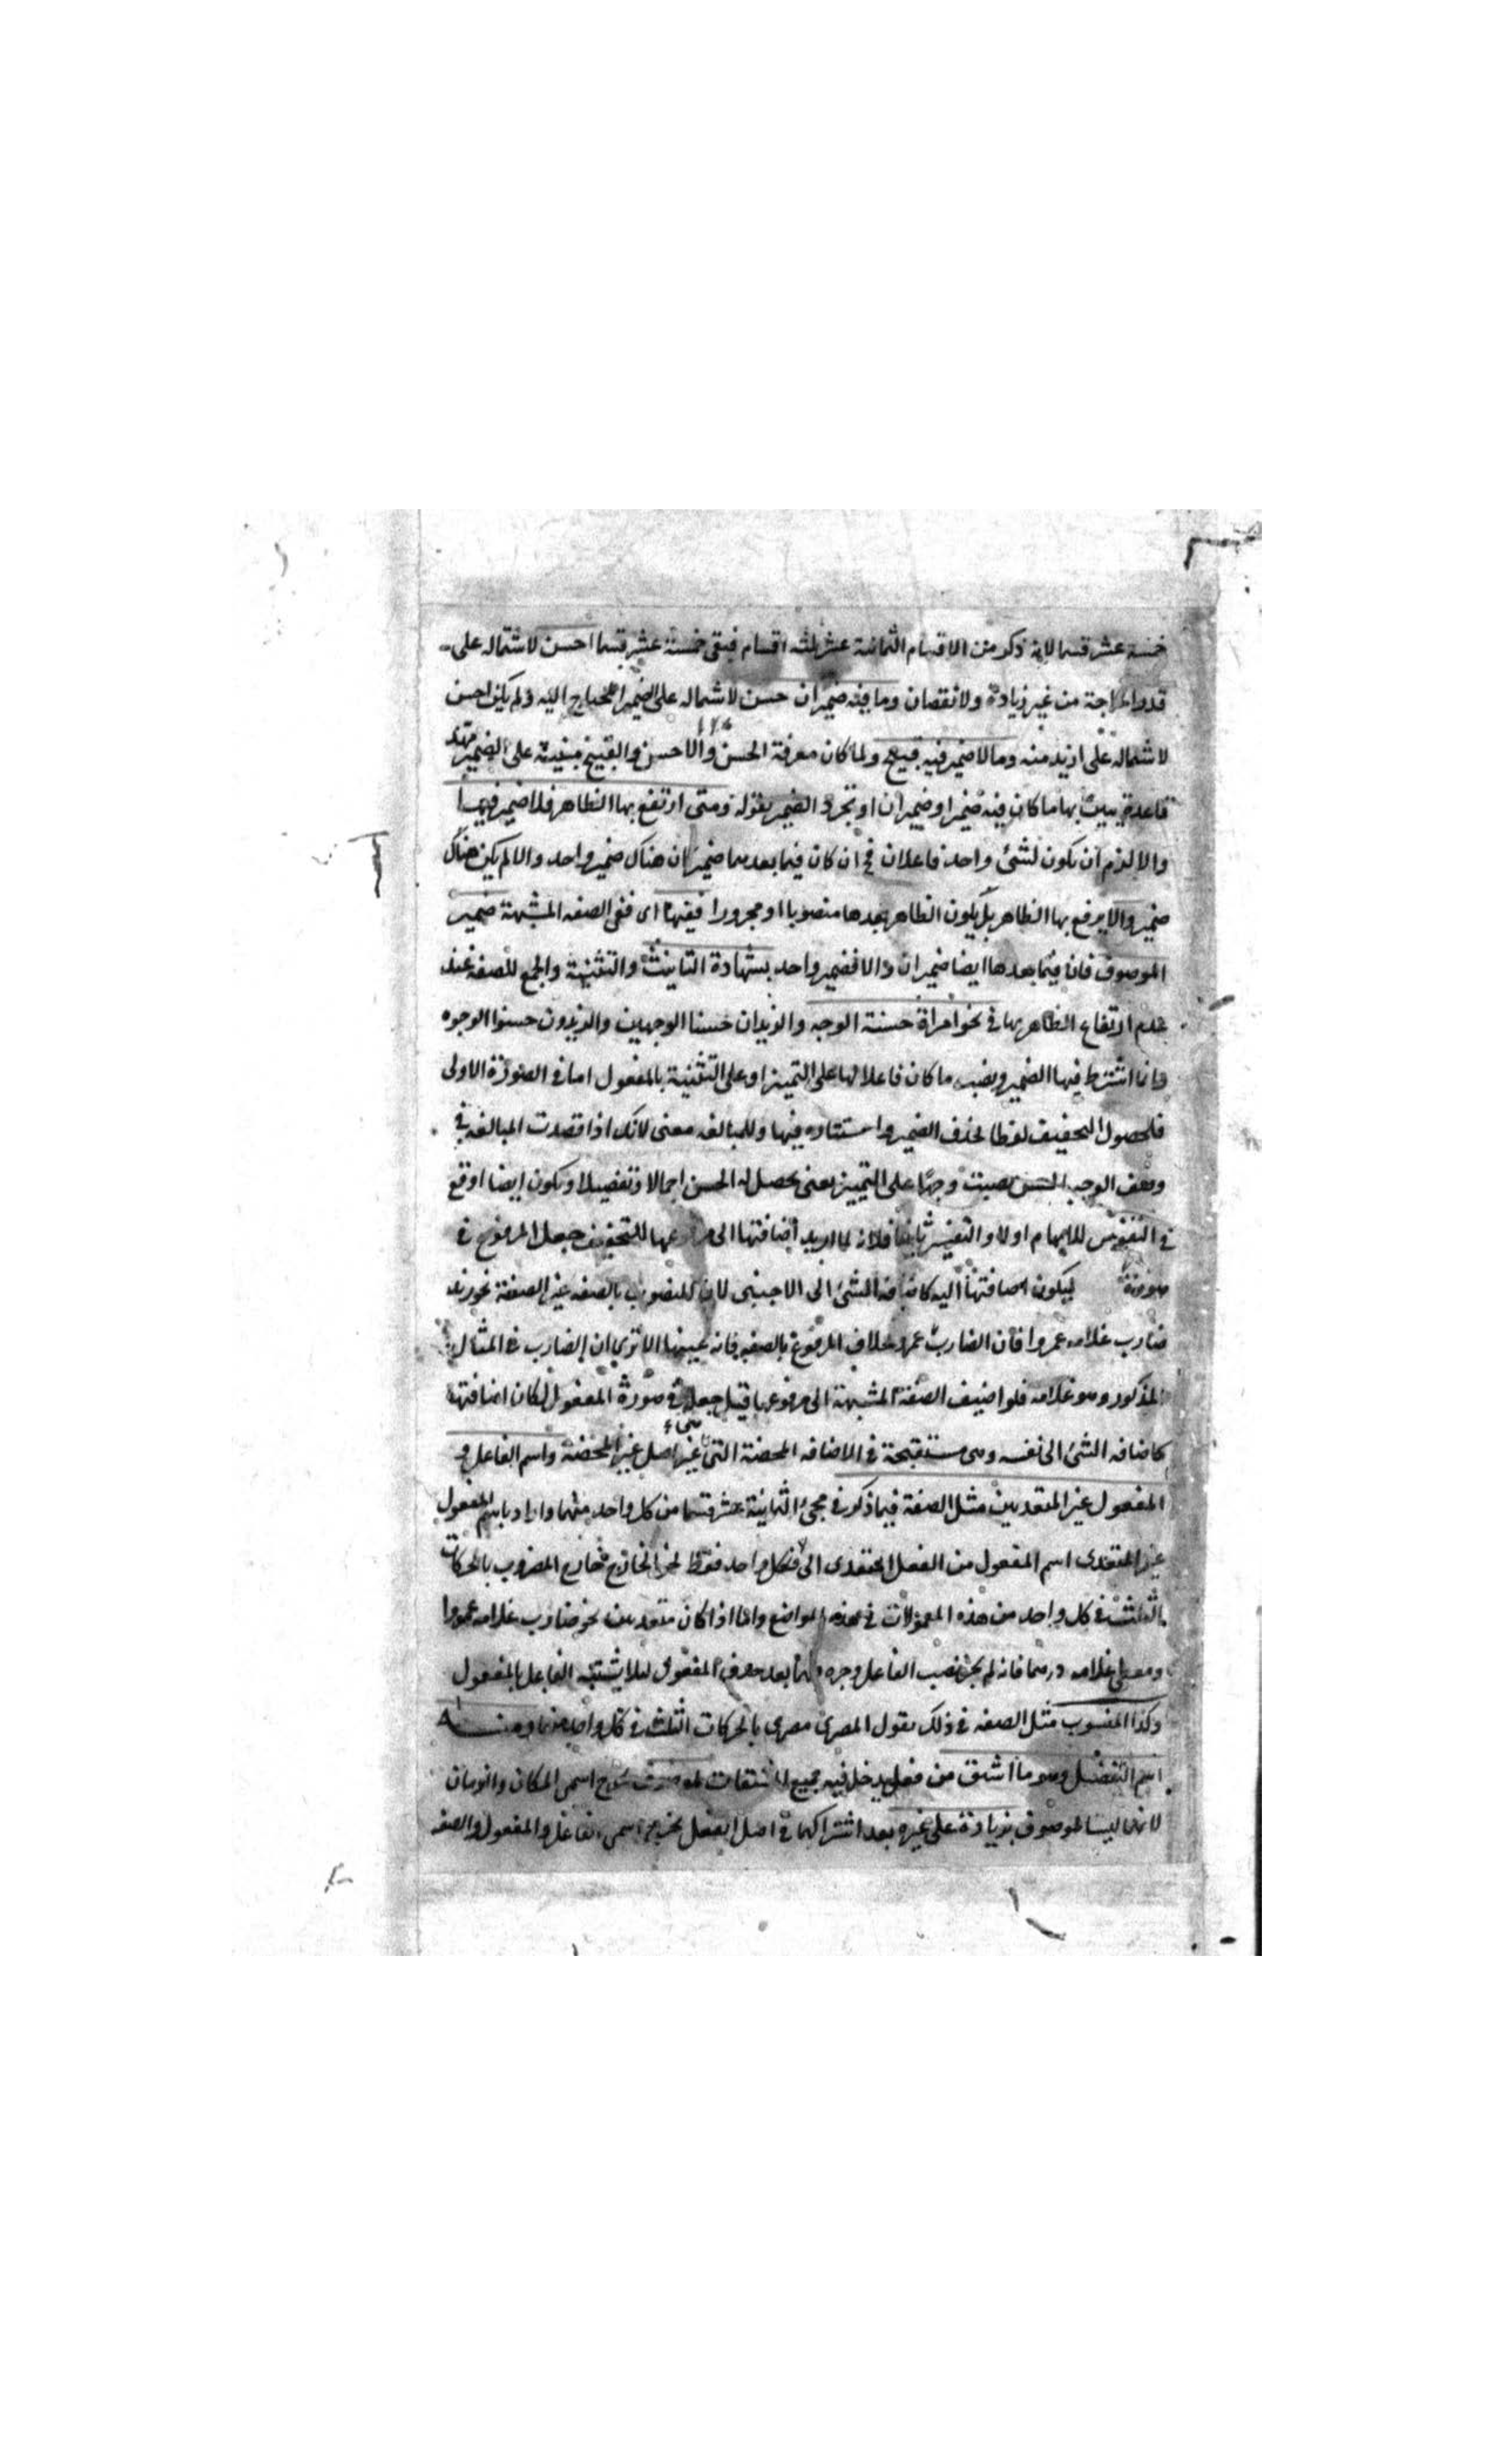 خمسة عشر قسما لانه ذكر من الاقسام الثمانية عشر ثلثه اقسام فبقى خمسة عشر قسما احسن لاشتماله على
قدر الحاجة من غير زيادة ولا نقصان وما فيه ضميران حسن لاشتماله على الضمير المحتاج اليه ولم يكن احسن
لاشتماله على ازيد منه وما لا ضمير فيه قبيح ولما كان معرفة الحسن والاحسن والقبيح مبنية على الضمير مهد
قاعدة يبين بها ما كان فيه ضمير او ضميران او تجرد الضمير بقوله ومتى ارتفع بها الظاهر فلا ضمير فيها
والا لزم ان يكون لشئ واحد فاعلان فح ان كان فيما بعدها ضمير كان هناك ضمير واحد والا لم يكن هناك
ضمير والا يرفع بها الظاهر بل يكون الظاهر بعدها منصوبا او مجرورا ففيها اى ففى الصفه المشبهة ضمير
الموصوف فان فيما بعدها ايضا ضميران والا فضمير واحد بشهادة التانيث والتثنية والجمع للصفه عند
عدم ارتفاع الظاهر بها فى نحو امراة حسنة الوجه والزيدان حسنا الوجهين والزيدون حسنوا الوجوه
وانما اشترط فيها الضمير ونصب ما كان فاعلا لها على التميز او على التثنية بالمفعول اما فى الصورة الاولى
فلحصول التخفيف لفظا بحذف الضمير واستتاره فيها وللمبالغه معنى لانك اذا قصدت المبالغه فى
وصف الوجه الحسن نصبت وجها على التمييز يعنى يحصل له الحسن اجمالا وتفصيلا ويكون ايضا اوقع
فى النفوس للابهام اولا والتفسير ثانيا فلانه لما اريد اضافتها الى مرفوعها للتخفيف جعل المرفوع فى
صورة ليكون اضافتها اليه كاضافة الشئ الى الاجنبى لان المنصوب بالصفه غير الصفة نحو زيد
ضارب غلامه عمروا فان الضارب عمرو بخلاف المرفوع بالصفه فانه عينها الا ترى ان الضارب فى المثال
المذكور وهو غلامه فلو اضيف الصفة المشبهة الى مرفوعها قبل جعله فى صورة المفعول لكان اضافتها
كاضافه الشئ الى نفسه وهى مستقبحة فى الاضافه المحضة التى هى اصل غير المحضة واسم الفاعل و
المفعول غير المتعديين مثل الصفة فيما ذكر فى مجئ الثمانية عشر قسما من كل واحد منهما واراد باسم المفعول
غير المتعدى اسم المفعول من الفعل المتعدى الى واحد فقط نحو المضروب بالحركات
الثلث فى كل واحد من هذه المعمولات فى هذه المواضع واما اذا كان متعديين نحو ضارب غلامه عمروا
ومعطى غلامه درهما فانه لم يجز نصب الفاعل وجره بعد حذف المفعول لئلا يشتبه الفاعل بالمفعول
وكذا المنسوب مثل الصفه فى ذلك يقول المصرى مصرى بالحركات الثلث فى كل واحد منها ومنها
اسم التفضيل وهو ما اشتق من فعل يدخل فيه جميع المشتقات لموصوف خرج اسمى المكان والزمان
لانهما ليسا لموصوف بزيادة على غيره بعد اشتراكهما فى اصل الفعل يخرج اسمى الفاعل والمفعول والصفه